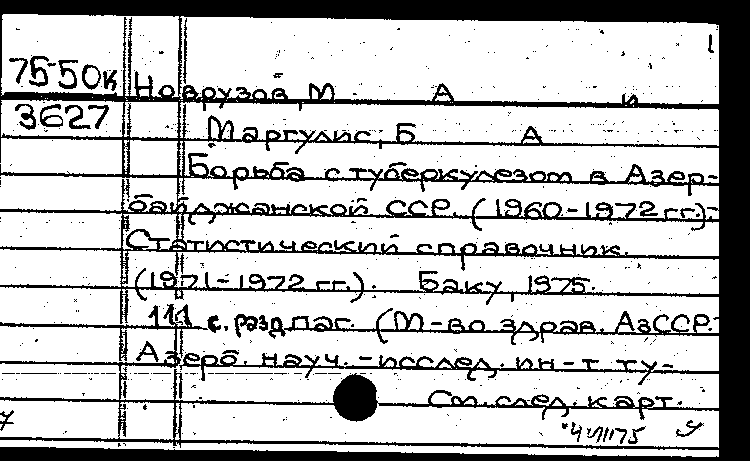 75-50к
3627
Новрузов, М А и
Маргулис, Б А
Борьба с туберкулезом в Азер-
байджанской ССР. (1960-1972 гг.):
Статистический справочник.
(1971-1972 гг.). Баку, 1975.
111 с. разд. паг. (М-во здрав. АзССР.
Азерб. науч.-исслед. ин-т ту-
См. след. карт.